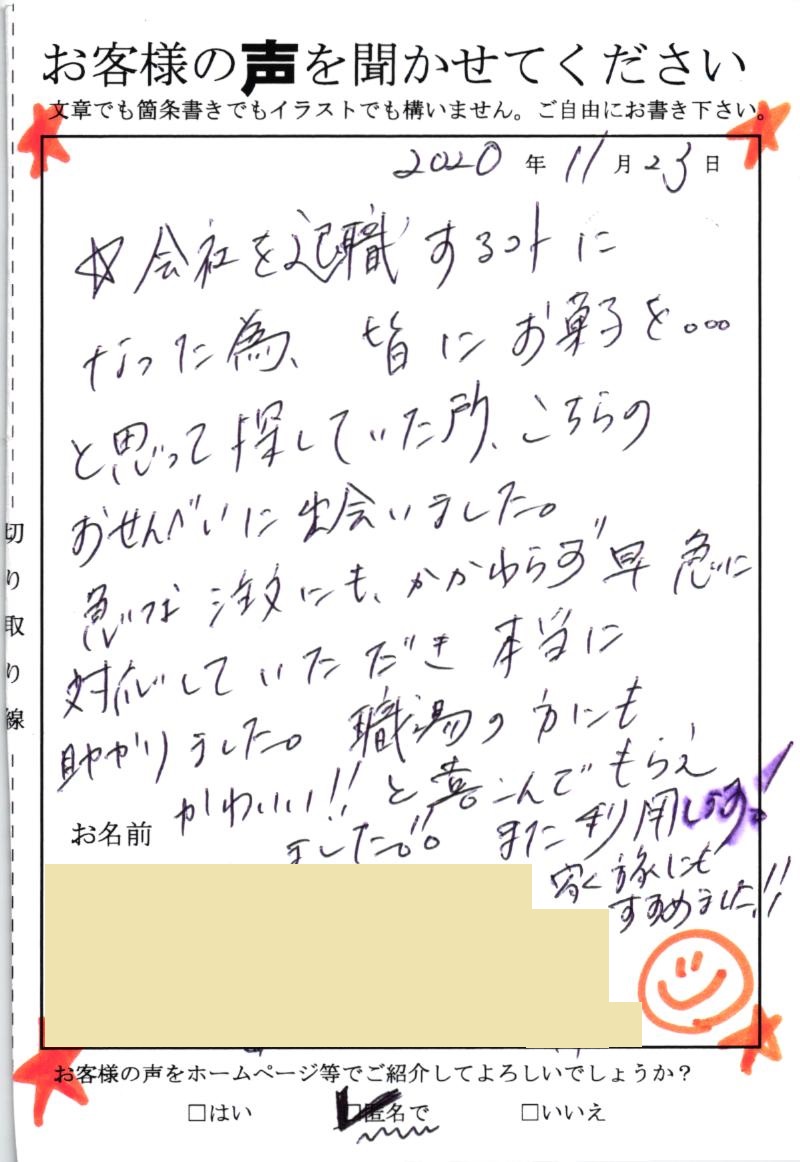 お客様の声を聞かせてください
文章でも箇条書きでもイラストでも構いません。ご自由にお書き下さい。
2020年11月23日
☆会社を退職するコトに
なった為、皆にお菓子を...
と思って探していた所、こちらの
おせんべいに出会いました。
急な注文にも、かかわらず早急に
対応していただき本当に
助かりました。職場の方にも
かわいい!!と喜こんでもらえ
ました!!。また利用します!
家族にも
すすめました!!
お名前
切り取り線
お客様の声をホームページ等でご紹介してよろしいでしょうか？
□はい □匿名で □いいえ